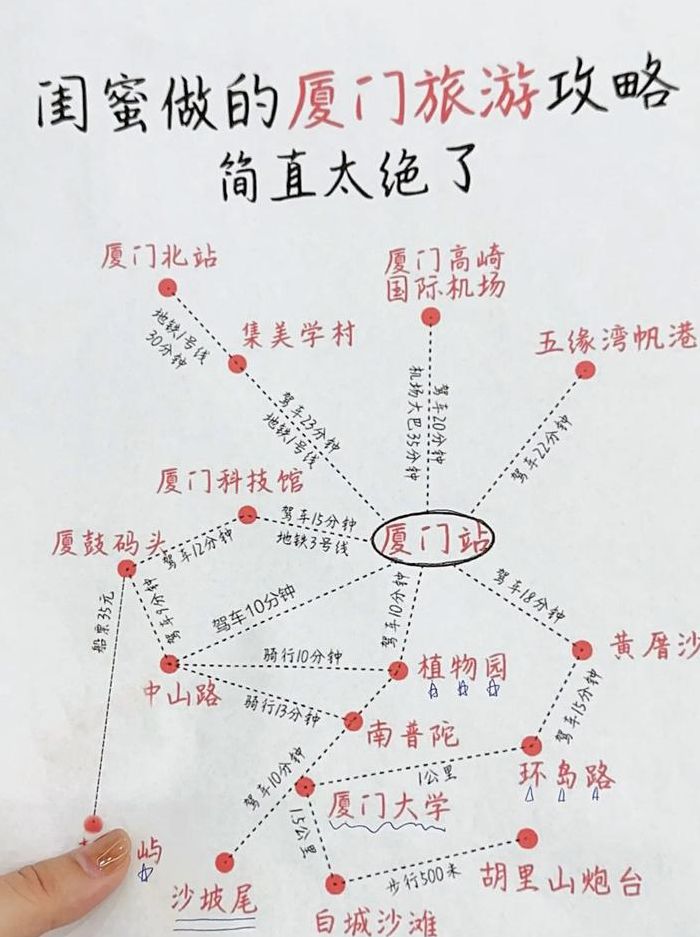 闺蜜做的厦门旅游攻略
简直太绝了
厦门北站
厦门高崎
国际机场
地铁1号线
30分钟
集美学村
五缘湾帆港
驾车23分钟
地铁1号线
驾车20分钟
机场大巴35分钟
驾车22分钟
厦门科技馆
驾车15分钟
地铁3号线
厦门站
厦鼓码头
驾车12分钟
船票35元
驾车10分钟
驾车10分钟
驾车18分钟
骑行10分钟
植物园
黄厝沙
中山路
骑行13分钟
南普陀
驾车15分钟
驾车10分钟
1公里
环岛路
厦门大学
1.5公里
屿
沙坡尾
步行500米
胡里山炮台
白城沙滩